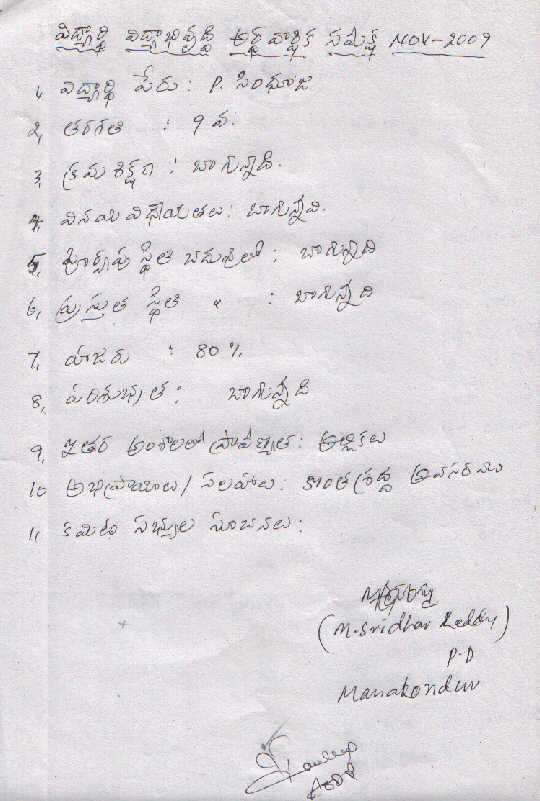 విద్యార్థి విద్యాభివృద్ధి అర్థ వార్షిక సమీక్ష NOV-2009
1, విద్యార్థి పేరు : P. సింధూజ
2, తరగతి : 9 వ.
3, క్రమశిక్షణ : బాగున్నది.
4, వినయ విధేయతలు : బాగున్నవి.
5, పూర్వపు స్థితి చదువులో : బాగున్నది
6, ప్రస్తుత స్థితి " : బాగున్నది
7, హాజరు : 80 %
8, పరిశుభ్రత : బాగున్నది
9, ఇతర అంశాలలో ప్రావీణ్యత : అల్లికలు
10 అభిప్రాయాలు / సలహాలు : కొంత శ్రద్ధ అవసరము
11, కమిటీ సభ్యుల సూచనలు :
(M. Sridhar Reddy)
P.D
Manakondur